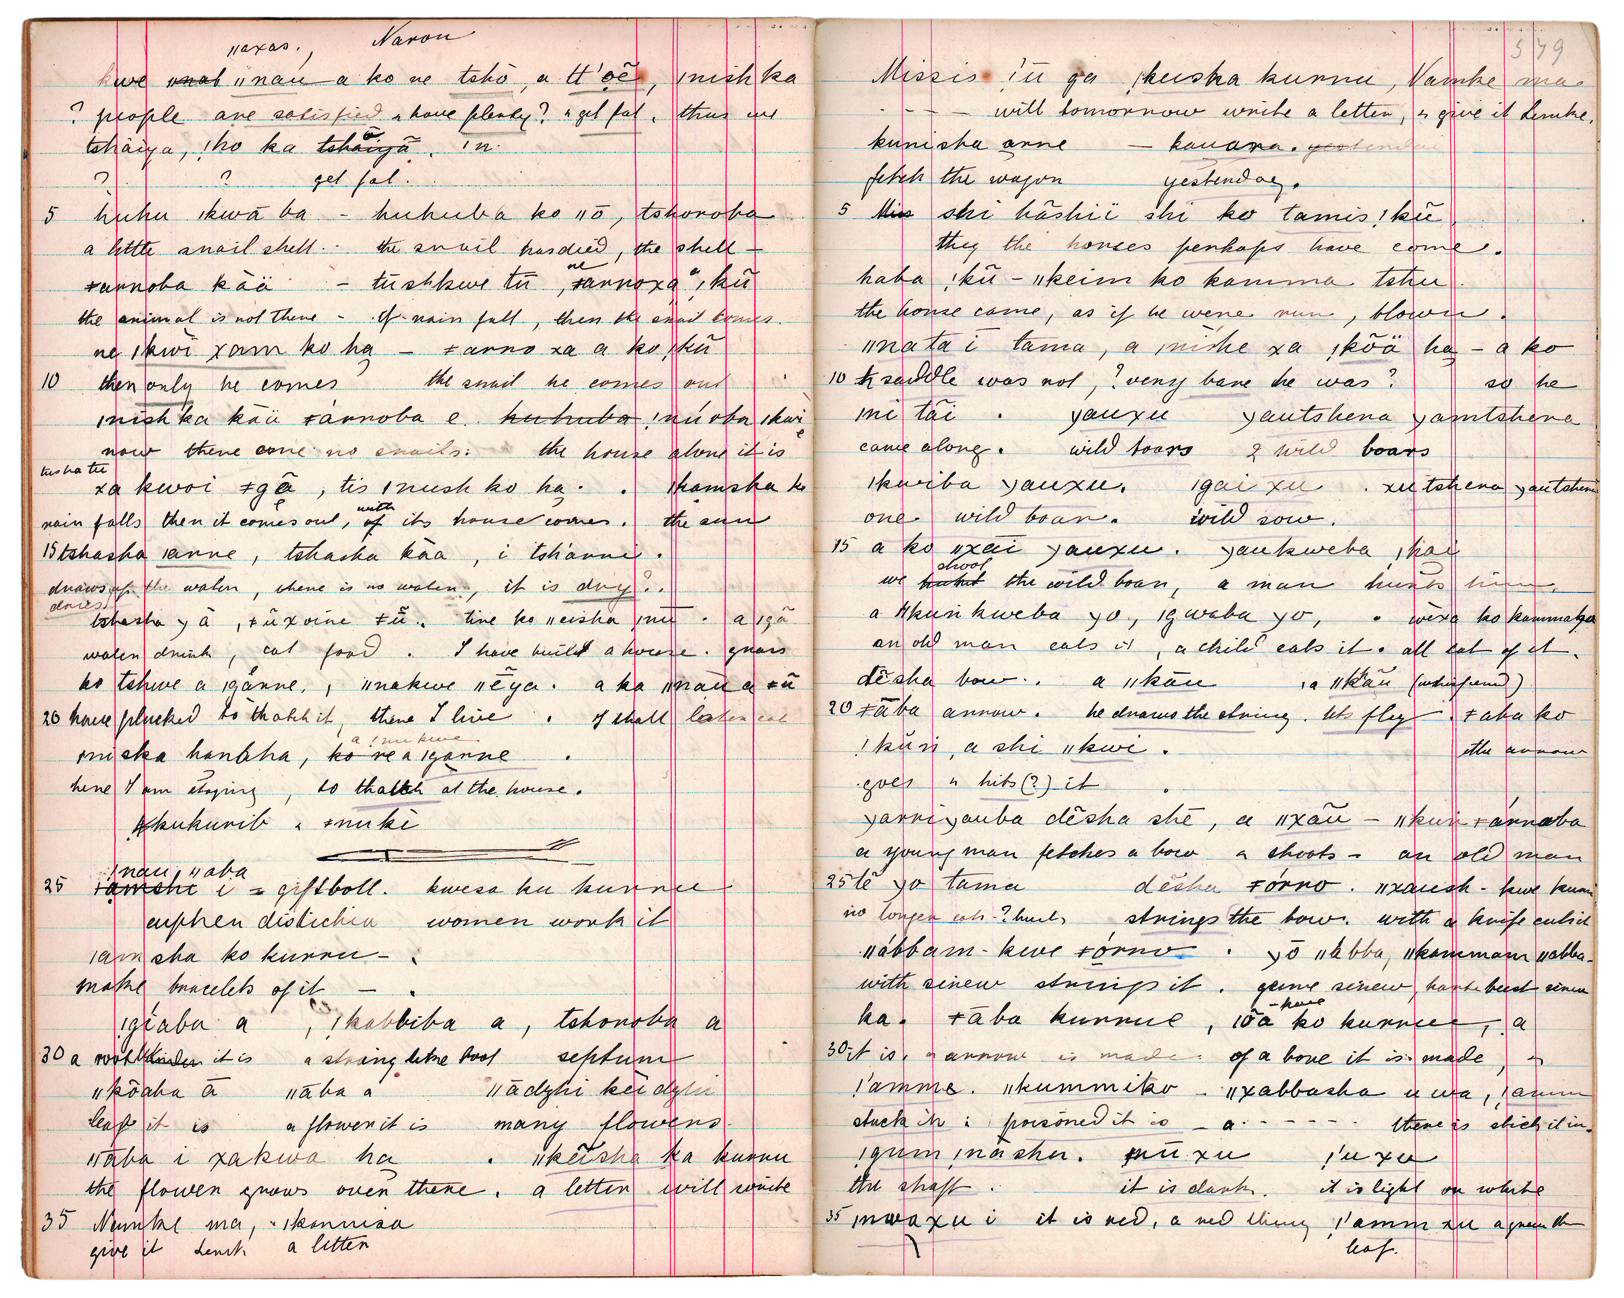 ǁaxas., Naron
kwe ǁnau a ko ne tshō, a tt'oē, ǀnishka
? people are satisfied & have plenty? & get fat, thus we
tshāiya, ǃho ka tshāiyā. ǀn.
? ? get fat.
5 huhu ǀkwā ba - huhuba ko ǁō, tshoroba
a little snail shell. - the snail has died, the shell -
ǂarroba kāä - tushkwe tū, ne ǂarroxa ǀkū
the animal is not there - If rain fall, then the snail comes.
ne ǀkwi xam ko ha - ǂarro xa a ko ǀkū
10 then only he comes the snail he comes out
ǀnishka kāü ǂárroba e. huhuba ǃnúoba ǀkwi
now there are no snails: the house alone it is
tusha tu
xa kwoi ǂgā, tis ǀnush ko ha. ǀkamsha ko
rain falls then it comes out, with its house comes. the sun
15 tshasha ǀanne, tshasha kāa, i tshárri.
draws up the water, there is no water, it is dry?.
dries
tshasha y ā, ǂūxoine ǂū. tire ko ǁeisha ǀnū. a ǀgā
water drink, eat food. I have build a house. grass
ko tshwe a ǀgānne, ǁnakwe ǁēya. a ka ǁnāu a ǂū
20 have plucked to thatch it, there I live. I shall later eat
miska hanbha, ko ne a ǀganne
here I am staying, to thatch at the house.
kukurib & ǂnuki
ǃnau ǁaba
25 ǂamshi i = giftboll. kwesa ku kurru
buphen distichia women work it
ǀamsha ko kurru -
make bracelets of it -
ǀgíaba a, ǀkabbiba a, tshoroba a
30 a root it is a string like bool septum
ǁkōaba ā ǁāba a ǁādzhi kēidzhi
leaf it is a flower it is many flowers.
ǁāba i xakwa ha. ǁkēisha ka kurru
the flower grows over there. a letter will write
35 Namke ma, ǀkannisa
give it Lenk a letter
579
Missis ǃū ga ǀkuska kurru, Namke ma
- - - will tomorrow write a letter, & give it Lemke.
kunisha arre - kauara. yesterday
fetch the wagon yesterday.
5 Miss shi hāshii shi ko tamis ǃkū
they the horses perhaps have come.
haba ǀkū - ǁkeim ko kamma tshu
the horse came, as if he were run, blown.
ǁnata i tama, a ǀnishe xa ǀkōä ha - a ko
10 saddle was not, ? very bare he was? so he
ǀni tāi. yauxu yautshera yamtshera
came along. wild boars 2 wild boars
ǀkwiba yauxu. ǀgai xu. xutshera yautshera
one wild boar. wild sow.
15 a ko ǁxāi yauxu. yaukweba ǀhai
shoot
we the wild boar, a man hunts him
a ǂkuri kweba yo, ǀgwaba yo, . wēxa ko kammatsa
an old man eats it, a child eats it. all eat of it.
dēsha bow. a ǁkāu ǀa ǁkāu (whispered)
20 ǂāba arrow. he draws the string. lets fly. ǂaba ko
ǃkūn, a shi ǁkwi. the arrow
goes & hits (?) it
yarriyauba dēsha shē, a ǁxāu - ǁkuri ǂárroba
a young man fetches a bow & shoots - an old man
25 tē yo tama dēsha ǂórro. ǁxaush - kwe kurri
no longer eats ? hurts strings the bow. with a knife cuts it
ǁábbam - kwe ǂórro. yō ǁābba, ǁkammam ǁabba -
with sinew strings it. game sinew, hartebeest sinew
ka. ǂāba kurrue, ǀōa ko kurrue, a
30 it is, an arrow is made. of a bone it is made, &
ǃ'amme. ǁkummiko - ǁxabbasha u wa, ǃamm
stuck in i poisoned it is - a - - - - there is stick it in.
ǀgum ǀnāshu. ǂnū xu ǀ'u xu
the shaft. it is dark. it is light or white
35 ǀnwaxu i it is red, a red thing ǃ'amm xu a green th
leaf.